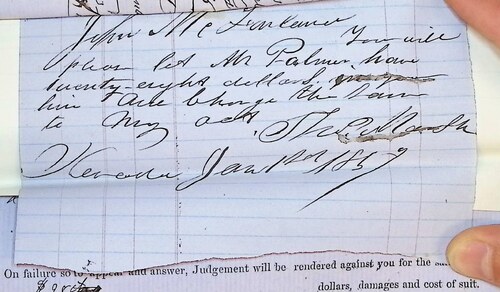 John McFarland
You will
please let Mr Palmer have
twenty-eight dollars
him and Charge the Sum
to My act.
Nevada Jan 1st 1857
On failure so to appear and answer, Judgement will be rendered against you for the
dollars, damages and cost of suit.